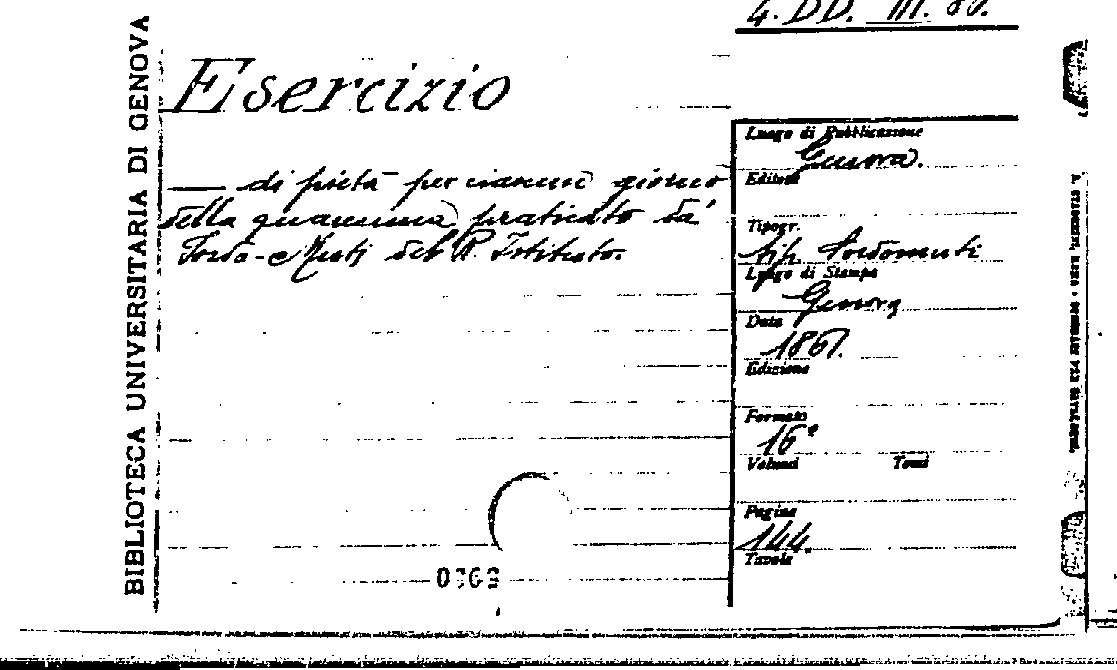 4. DD. III. 80.
BIBLIOTECA UNIVERSITARIA DI GENOVA
Esercizio
— di pietà per ciascun giorno
della quaresima praticato da'
Sordo-Muti del R. Istituto.
Luogo di Pubblicazione
Genova.
Editore
Tipogr.
tip. Sordomuti
Luogo di Stampa
Genova
Data
1867.
Edizione
Formato
16°
Volumi Tomi
Pagine
144.
Tavole